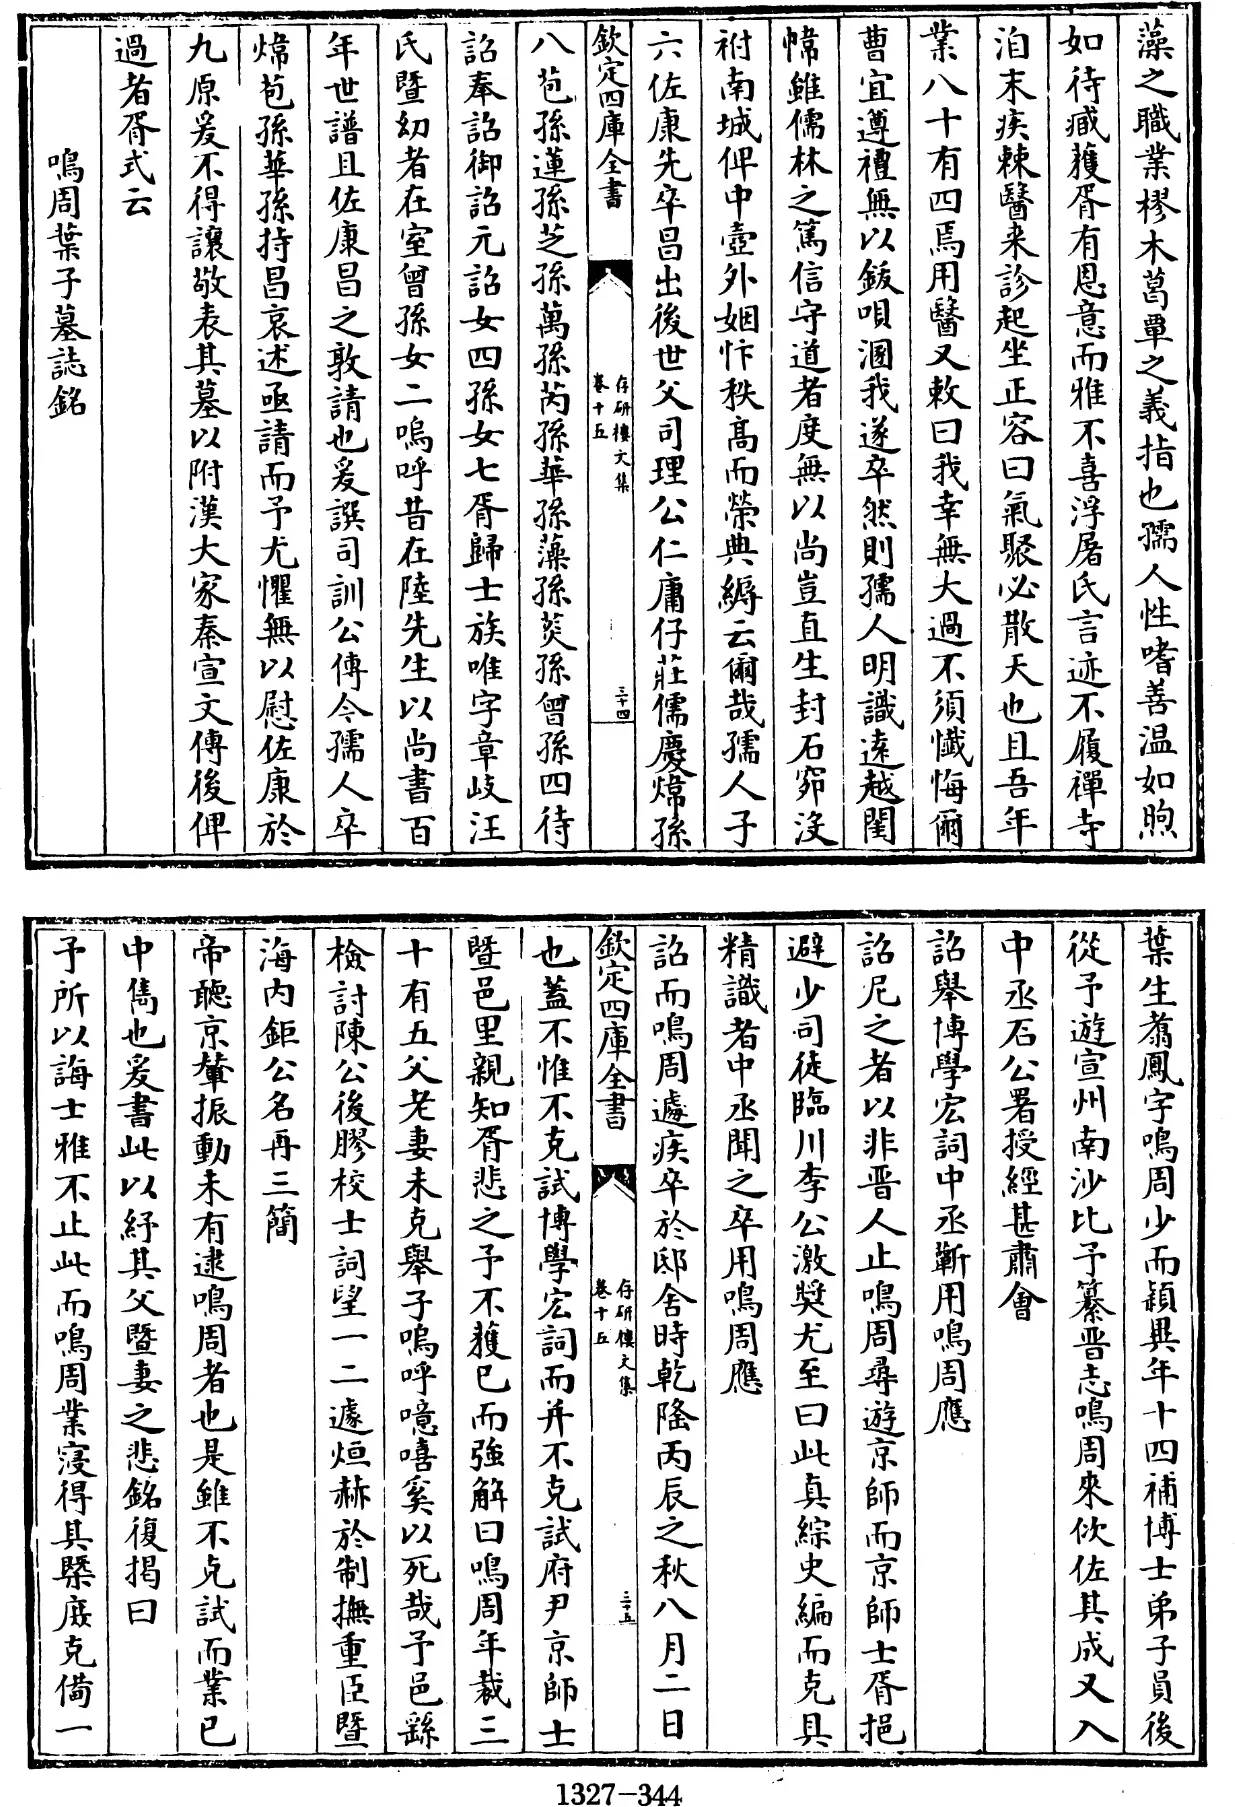 藻之職業樛木葛覃之義指也孺人性嗜善温如煦
如待臧獲胥有恩意而雅不喜浮屠氏言迹不履禪寺
洎末疾棘醫来診起坐正容曰氣聚必散天也且吾年
業八十有四焉用醫又敕曰我幸無大過不須懺悔爾
曹宜遵禮無以鈸唄溷我遂卒然則孺人明識逺越閨
幃雖儒林之篤信守道者度無以尚豈直生封石窌沒
祔南城俾中壼外姻忭秩髙而榮典縟云爾哉孺人子
六佐康先卒昌出後世父司理公仁庸仔莊儒慶煒孫
欽定四庫全書
存研樓文集
卷十五
三十四
八苞孫蓮孫芝孫萬孫芮孫華孫藻孫莢孫曾孫四待
詔奉詔御詔元詔女四孫女七胥歸士族唯字章岐汪
氏暨幼者在室曾孫女二嗚呼昔在陸先生以尚書百
年世譜且佐康昌之敦請也爰譔司訓公傳今孺人卒
煒苞孫華孫持昌哀述亟請而予尤懼無以慰佐康於
九原爰不得讓敬表其墓以附漢大家秦宣文傳後俾
過者胥式云
鳴周葉子墓誌銘
葉生翥鳳字鳴周少而穎異年十四補博士弟子員後
從予遊宣州南沙比予纂晋志鳴周來佽佐其成又入
中丞石公署授經甚肅會
詔舉博學宏詞中丞蘄用鳴周應
詔尼之者以非晋人止鳴周尋遊京師而京師士胥挹
避少司徒臨川李公激奬尤至曰此真綜史編而克具
精識者中丞聞之卒用鳴周應
詔而鳴周遽疾卒於邸舍時乾隆丙辰之秋八月二日
欽定四庫全書
存研樓文集
卷十五
三十五
也蓋不惟不克試博學宏詞而并不克試府尹京師士
暨邑里親知胥悲之予不獲已而強解曰鳴周年裁三
十有五父老妻未克舉子嗚呼噫嘻奚以死哉予邑繇
檢討陳公後膠校士詞望一二遽烜赫於制撫重臣暨
海内鉅公名再三簡
帝聽京輦振動未有逮鳴周者也是雖不克試而業已
中雋也爰書此以紓其父暨妻之悲銘復揭曰
予所以誨士雅不止此而鳴周業寖得其槩庶克備一
1327-344